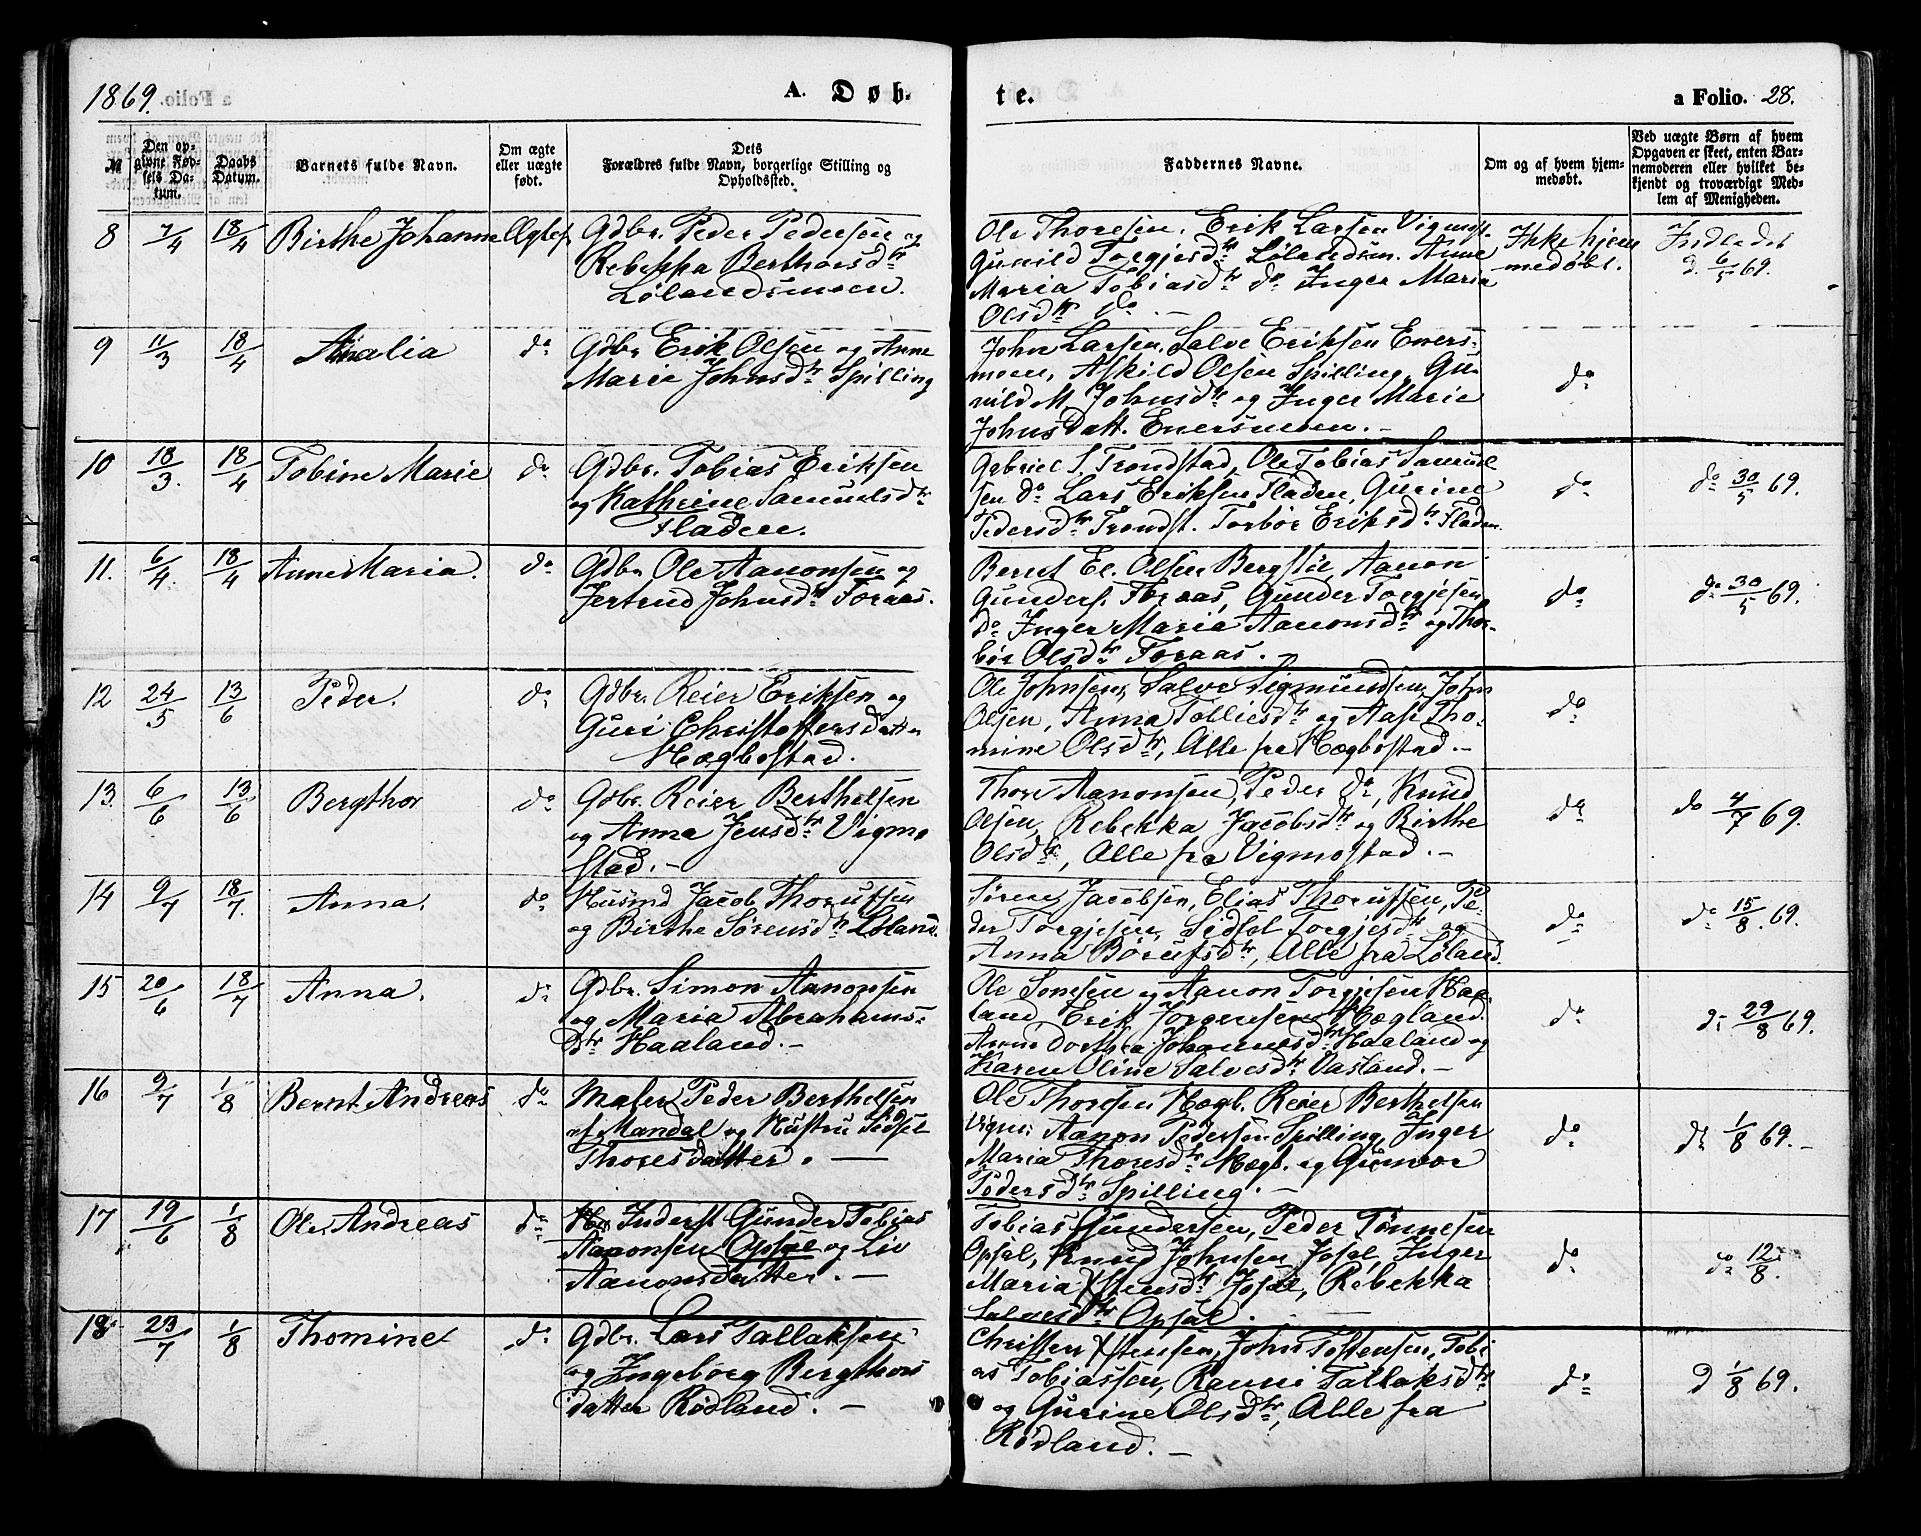 1869.
A. Døb-
te.
a Folio. 28.
№
Den op-
givne Fød-
sels Da-
tum.
Daabs
Datum.
Barnets fulde Navn.
Om ægte
eller uægte
født.
Dets
Forældres fulde Navn, borgerlige Stilling og
Opholdssted.
Faddernes Navne.
Om og af hvem hjem-
medøbt.
Ved uægte Børn af hvem
Opgaven er skeet, enten Bar-
nemoderen eller hvilket be-
kjendt og troværdigt Med-
lem af Menigheden.
8 7/4 18/4 Birthe Johanne Ægtef.
Gdbr. Peder Pedersen og
Rebekka Berthorsdtr
Lølandsmoen.
Ole Thoresen, Erik Larsen Vigmost.
Gunild Torgjesdtr Lølandsm. Anne
Maria Tobiasdtr do Inger Maria
Olsdtr do. -
Ikke hjem
medøbt.
Indledet
d. 6/5 69.
9 11/3 18/4 Amalia do
Gdbr Erik Olsen og Anne
Marie Johnsdtr Spilling
John Larsen, Salve Eriksen Eners-
moen, Askild Olsen Spilling, Gu-
nild M. Johnsdtr og Inger Marie
Johnsdatt. Enersmoen. -
do
10 18/3. 18/4 Tobine Marie do
Gdbr. Tobias Eriksen
og Kathrine Samuelsdtr
Fladen.
Gabriel S. Trondstad, Ole Tobias Samuel
sen do Lars Eriksen Fladen, Gurine
Pedersdtr Trondst. Torbør Eriksdtr Fladen
do
do 30/5 69.
11. 6/4. 18/4 Anne Maria. do
Gdbr Ole Aanonsen og
Jertrud Johnsdtr Foraas.
Bernt El. Olsen Bergstøl, Aanon
Gunders. Foraas, Gunder Torgjesen
do Inger Maria Aanonsdtr og Thor-
bør Olsdtr Foraas. -
do
do 30/5 69.
12 24/5 13/6 Peder. do
Gdbr. Reier Eriksen og
Guri Christoffersdatter
Hægbostad.
Ole Johnsen, Salve Sigmundsen, John
Olsen, Anna Tolliesdtr og Aase Tho-
mine Olsdtr, Alle fra Hægbostad. -
do
13. 6/6 13/6 Bergthor do
Gdbr. Reier Berthelsen
og Anna Jensdtr Vigmo
stad. -
Thore Aanonsen, Peder do, Knud
Olsen, Rebekka Jacobsdtr og Birthe
Olsdtr, Alle fra Vigmostad. -
do
do 4/7 69.
14 9/7 18/7. Anna. do
Husmd Jacob Thorufsen
og Birthe Sørensdtr Løland.
Søren Jacobsen, Elias Thorufsen, Pe-
der Torgjesen, Sidsel Torgjesdtr og
Anna Børufsdtr, Alle fra Løland.
do
do 15/8. 69.
15 20/6 18/7 Anna. do
Gdbr. Simon Aanonsen
og Maria Abrahams-
dtr Haaland. -
Ole Sonesen og Aanon Torgjesen Haa-
land Erik Jørgensen Hægland.
Anne Dorthea Johannesdtr Haaland og
Karen Oline Salvesdtr Vasland. -
do
do 29/8 69.
16 9/7 1/8 Bernt Andreas do
Maler Peder Berthelsen
af Mandal og Hustru Sidsel
Thoresdatter. -
Ole Thoresen Hægb. Reier Berthelsen
Vigm. Aanon Pedersen Spilling, Inger
Maria Thoresdtr Hægb. og Gunvor
Pedersdtr Spilling. -
do
do 1/8 69. -
17 19/6 1/8 Ole Andreas do
Inderst Gunder Tobias
Aanonsen Opsal og Liv
Aanonsdatter. -
Tobias Gundersen, Peder Tønnesen
Opsal, Knud Johnsen Josal, Inger
Maria Stensdtr Josal, Rebekka
Salvesdtr Opsal. -
do
do 12/8.
18 23/7 1/8 Thomine do
Gdbr. Lars Tallaksen
og Ingeborg Bergthors
datter Rødland. -
Christen Stensen, John Tostensen, Tobi
as Tobiassen, Ranni Tallaksdtr
og Gurine Olsdtr, Alle fra
Rødland. -
do
d 1/8 69.